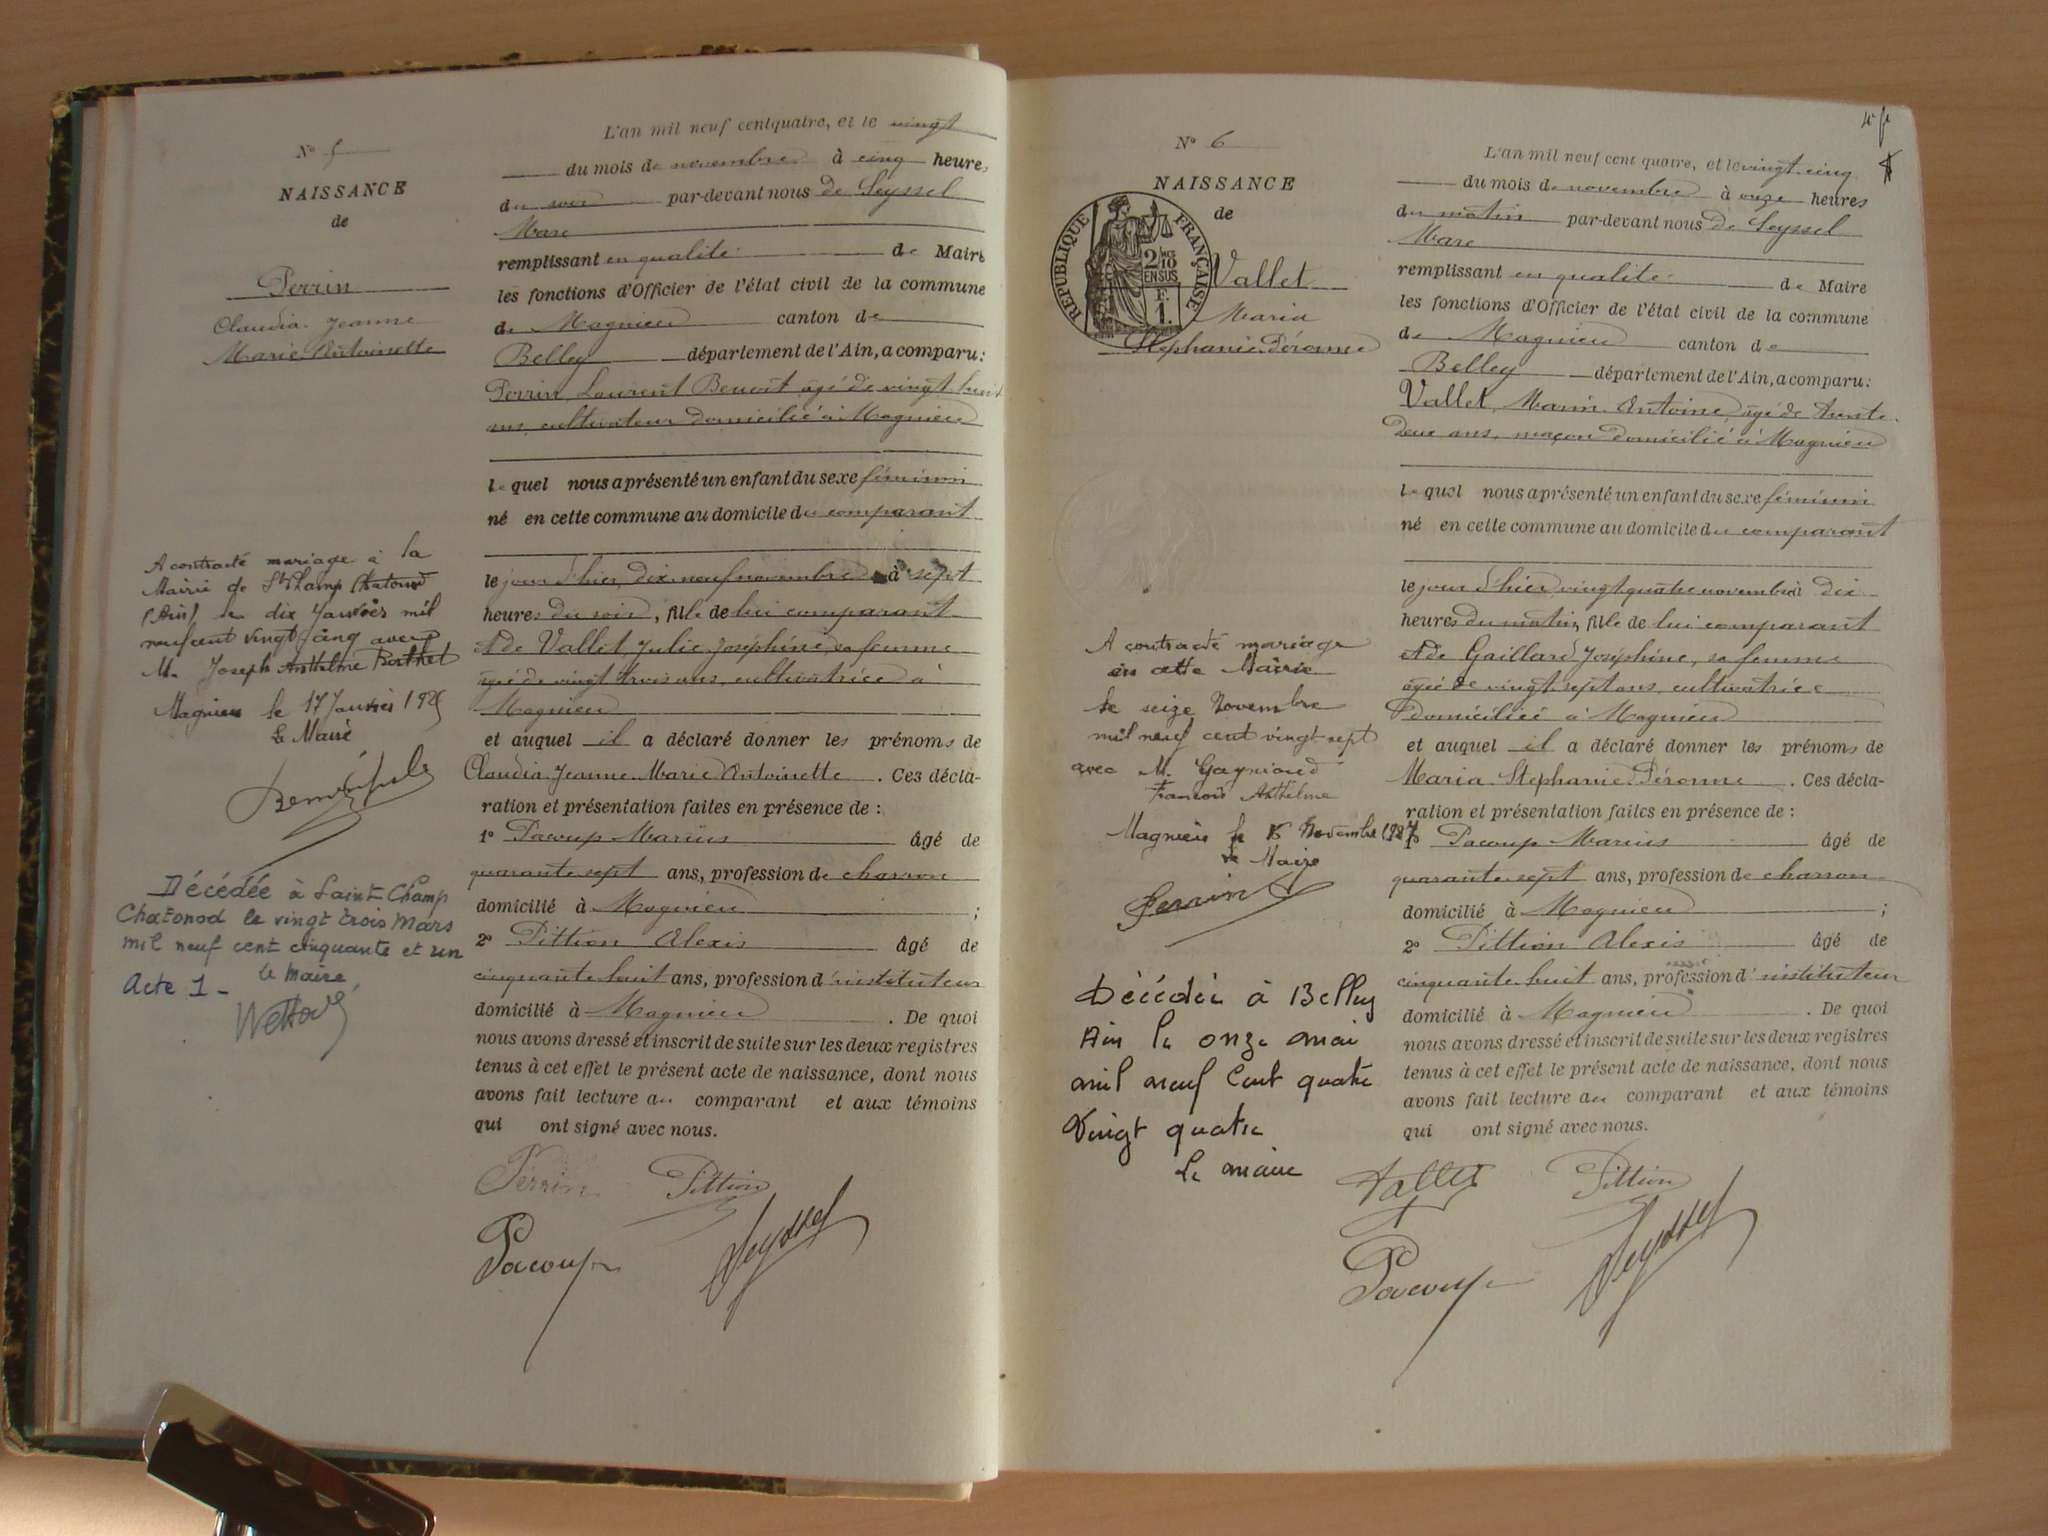 N° 5
NAISSANCE
de
Perrin
Claudia Jeanne
Marie Antoinette
A contracté mariage à la
Mairie de St Champ Chatonod
(Ain) le dix Janvier mil
neuf cent vingt cinq avec
M. Joseph Anthelme Berthet
Magnieu le 17 Janvier 1925
Le Maire
Décédée à Saint Champ
Chatonod le vingt trois Mars
mil neuf cent cinquante et un
le Maire
Acte 1 -
L'an mil neuf cent quatre, et le vingt
du mois de novembre à cinq heures
du soir par-devant nous de Seyssel
Marc
remplissant en qualité de Maire
les fonctions d'Officier de l'état civil de la commune
de Magnieu canton de
Belley département de l'Ain, a comparu:
Perrin Laurent Benoit âgé de vingt huit
ans, cultivateur domicilié à Magnieu
le quel nous a présenté un enfant du sexe féminin
né en cette commune au domicile du comparant
le jour d'hier dix neuf novembre à sept
heures du soir, fille de lui comparant
et de Vallet Julie Joséphine, sa femme
âgée de vingt trois ans, cultivatrice à
Magnieu
et auquel il a déclaré donner les prénoms de
Claudia Jeanne Marie Antoinette. Ces décla-
ration et présentation faites en présence de :
1° Pacoup Marius âgé de
quarante sept ans, profession de charron
domicilié à Magnieu ;
2° Pittion Alexis âgé de
cinquante huit ans, profession d'instituteur
domicilié à Magnieu. De quoi
nous avons dressé et inscrit de suite sur les deux registres
tenus à cet effet le présent acte de naissance, dont nous
avons fait lecture au comparant et aux témoins
qui ont signé avec nous.
Perrin Pittion
Pacoup Seyssel
N° 6
NAISSANCE
de
RÉPUBLIQUE FRANÇAISE
2/10 EN SUS
F. 1.
Vallet
Maria
Stéphanie Péronne
A contracté mariage
en cette Mairie
le seize Novembre
mil neuf cent vingt sept
avec M. Gagnioud
François Anthelme
Magnieu le 16 Novembre 1927
Le Maire
Perrin
Décédée à Belley
Ain le onze mai
mil neuf cent quatre
vingt quatre
Le maire
L'an mil neuf cent quatre, et le vingt-cinq
du mois de novembre à onze heures
du matin par-devant nous de Seyssel
Marc
remplissant en qualité de Maire
les fonctions d'Officier de l'état civil de la commune
de Magnieu canton de
Belley département de l'Ain, a comparu:
Vallet Marin Antoine, âgé de trente
deux ans, maçon domicilié à Magnieu
le quel nous a présenté un enfant du sexe féminin
né en cette commune au domicile du comparant
le jour d'hier vingt quatre novembre à dix
heures du matin, fille de lui comparant
et de Gaillard Joséphine, sa femme
âgée de vingt sept ans, cultivatrice
domiciliée à Magnieu
et auquel il a déclaré donner les prénoms de
Maria Stéphanie Péronne. Ces décla-
ration et présentation faites en présence de :
1° Pacoup Marius âgé de
quarante sept ans, profession de charron
domicilié à Magnieu ;
2° Pittion Alexis âgé de
cinquante huit ans, profession d'instituteur
domicilié à Magnieu. De quoi
nous avons dressé et inscrit de suite sur les deux registres
tenus à cet effet le présent acte de naissance, dont nous
avons fait lecture au comparant et aux témoins
qui ont signé avec nous.
Vallet Pittion
Pacoup Seyssel